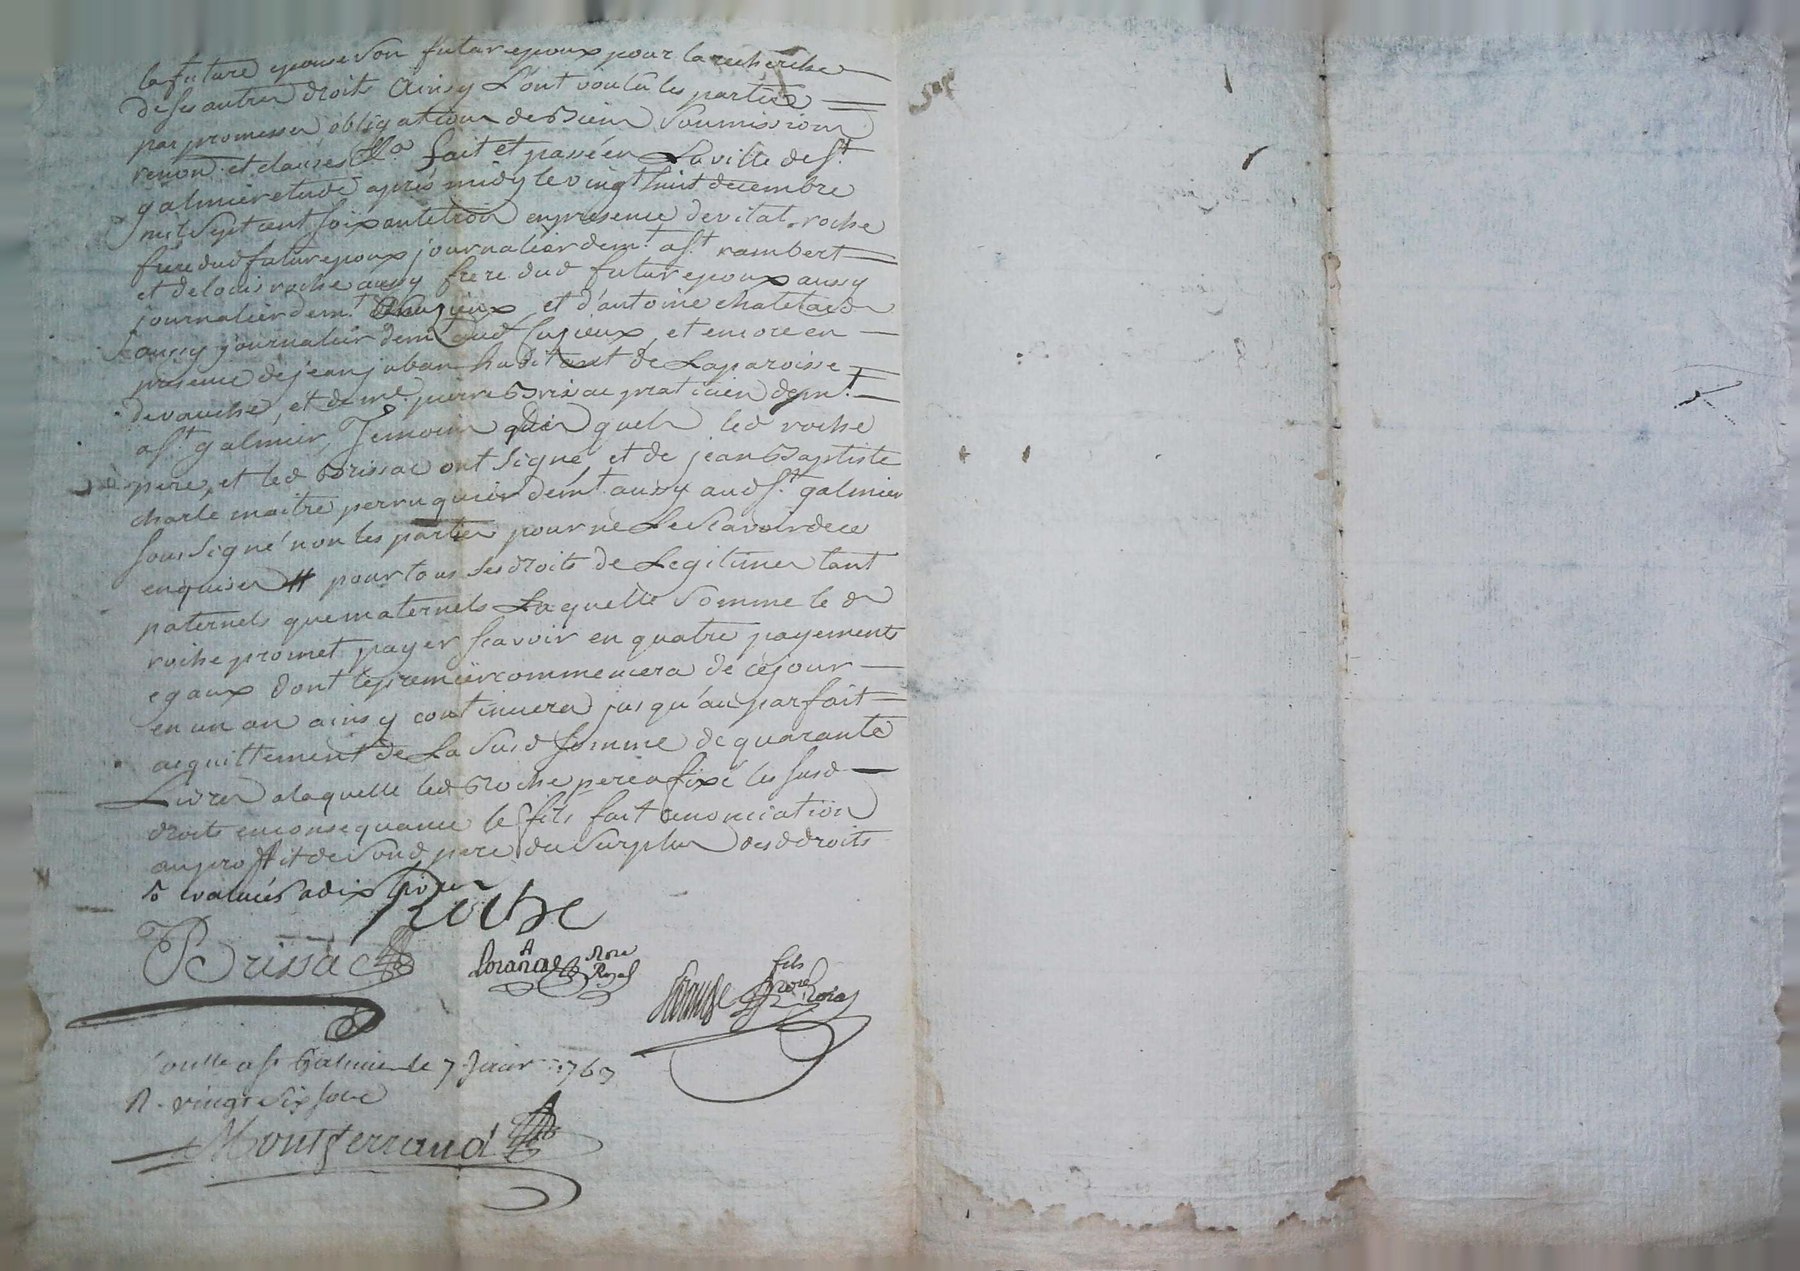 la future epouse son futur epoux pour la recherche
de ses autres droits Ainsy L'ont voulu les parties
par promesses obligations de Biens Soumissions
renon. et clauses &a fait et passé en La ville de St
galmier etude après midy le vingt huit decembre
mil Sept cent soixante trois en presence de vital roche
frere dud futur epoux journalier demt a St rambert
et de louis roche aussy frere dud futur epoux aussy
journalier demt et d'antoine chatelard
aussy journalier demt aud Cuzieux et encore en
presence de jean juban habitant de La paroisse
de vauche, et de me pierre Brissac praticien demt
a St galmier, Temoins quels led roche
pere, et led Brissac ont Signé et de jean Baptiste
charle maitre perruquier demt aussy aud St galmier
Sousigné non les parties pour ne Le Scavoir de ce
enquises # pour tous ses droits de Legitimes tant
paternels que maternels Laquelle Somme le d
roche promet payer Scavoir en quatre payements
egaux dont le premier commencera de ce jour
en un an ainsy continuera jusqu'au parfait
acquittement de La Susd Somme de quarante
Livres a laquelle led Roche pere a fixé les susd
droits en consequance le fils fait renonciation
au proffit de Sond pere du Surplus desd droits
evalués a dix livres
Roche
Brissac
Nore Royal
fils Nore Royal
Conllé a St Galmier le 7 Janr 1767
R. vingt Six Sous
Montferrand